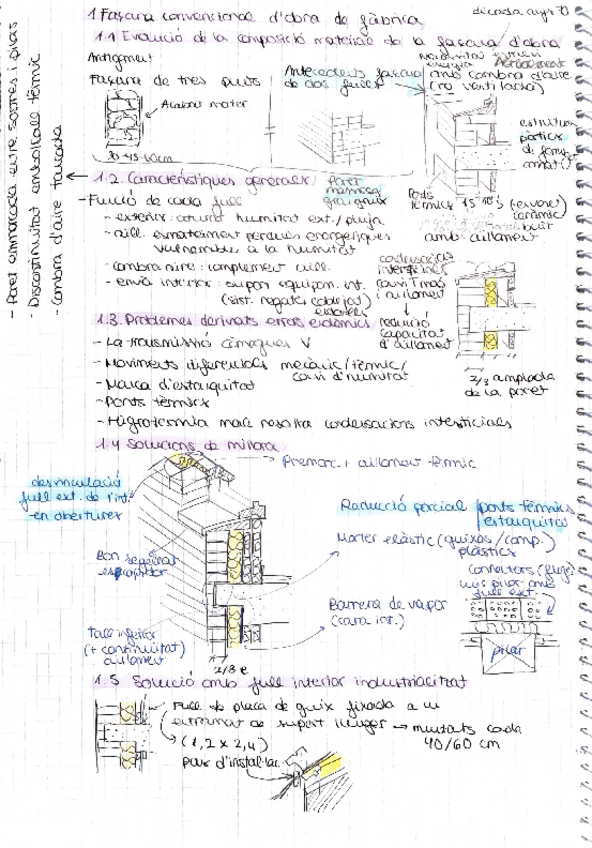 1. Façana convencional d'obra de fàbrica
dècada anys 70
1.1 Evolució de la composició material de la façana d'obra
Antigament
Façana de tres punts
Acabat morter
30-45-60cm
Antecedents façana
de dos fulles
Aïllament
amb cambra d'aire
(no ventilada)
estructura
pòrtics
de formigó
armat
Ponts
tèrmics
15
ceràmic
amb aïllament
- Paret emmarcada entre sostres i pilars
- Discontinuïtat embolcall tèrmic
- Cambra d'aire tancada
1.2. Característiques generals
Paret
massissa
- Funció de cada full
- exterior: humitat ext./pluja
- aïll. esmorteïment pèrdues energètiques
vulnerable a la humitat
- cambra aire: complement aïll.
- envà interior: supor equipam. int.
(sist. regates cablejat)
condensació
intersticial
canvi T massa
i aïllament
reducció
capacitat
d'aïllament
2/3 amplada
de la paret
1.3. Problemes derivats errors endèmics
- La transmissió càrregues V
- Moviments diferencials mecànic/tèrmic/
canvi d'humitat
- Manca d'estanquitat
- Ponts tèrmics
- Higrotermia mal resolta condensacions intersticials
1.4 Solucions de millora
Premarc + aïllament tèrmic
desvinculació
full ext. de l'int.
-en obertures
Bon segellat
escopidor
Tall inferior
(+ continuïtat)
aïllament
2/3 e
Reducció parcial ponts tèrmics
estanquitat
Morter elàstic (guixos/comp.)
plàstics
Connectors
full ext.
Barrera de vapor
(cara int.)
pilar
1.5 Solució amb full interior industrialitzat
Full de placa de guix fixada a un
entramat de suport lleuger → muntats cada
40/60 cm
(1,2 x 2,4)
pas d'instal·lac.